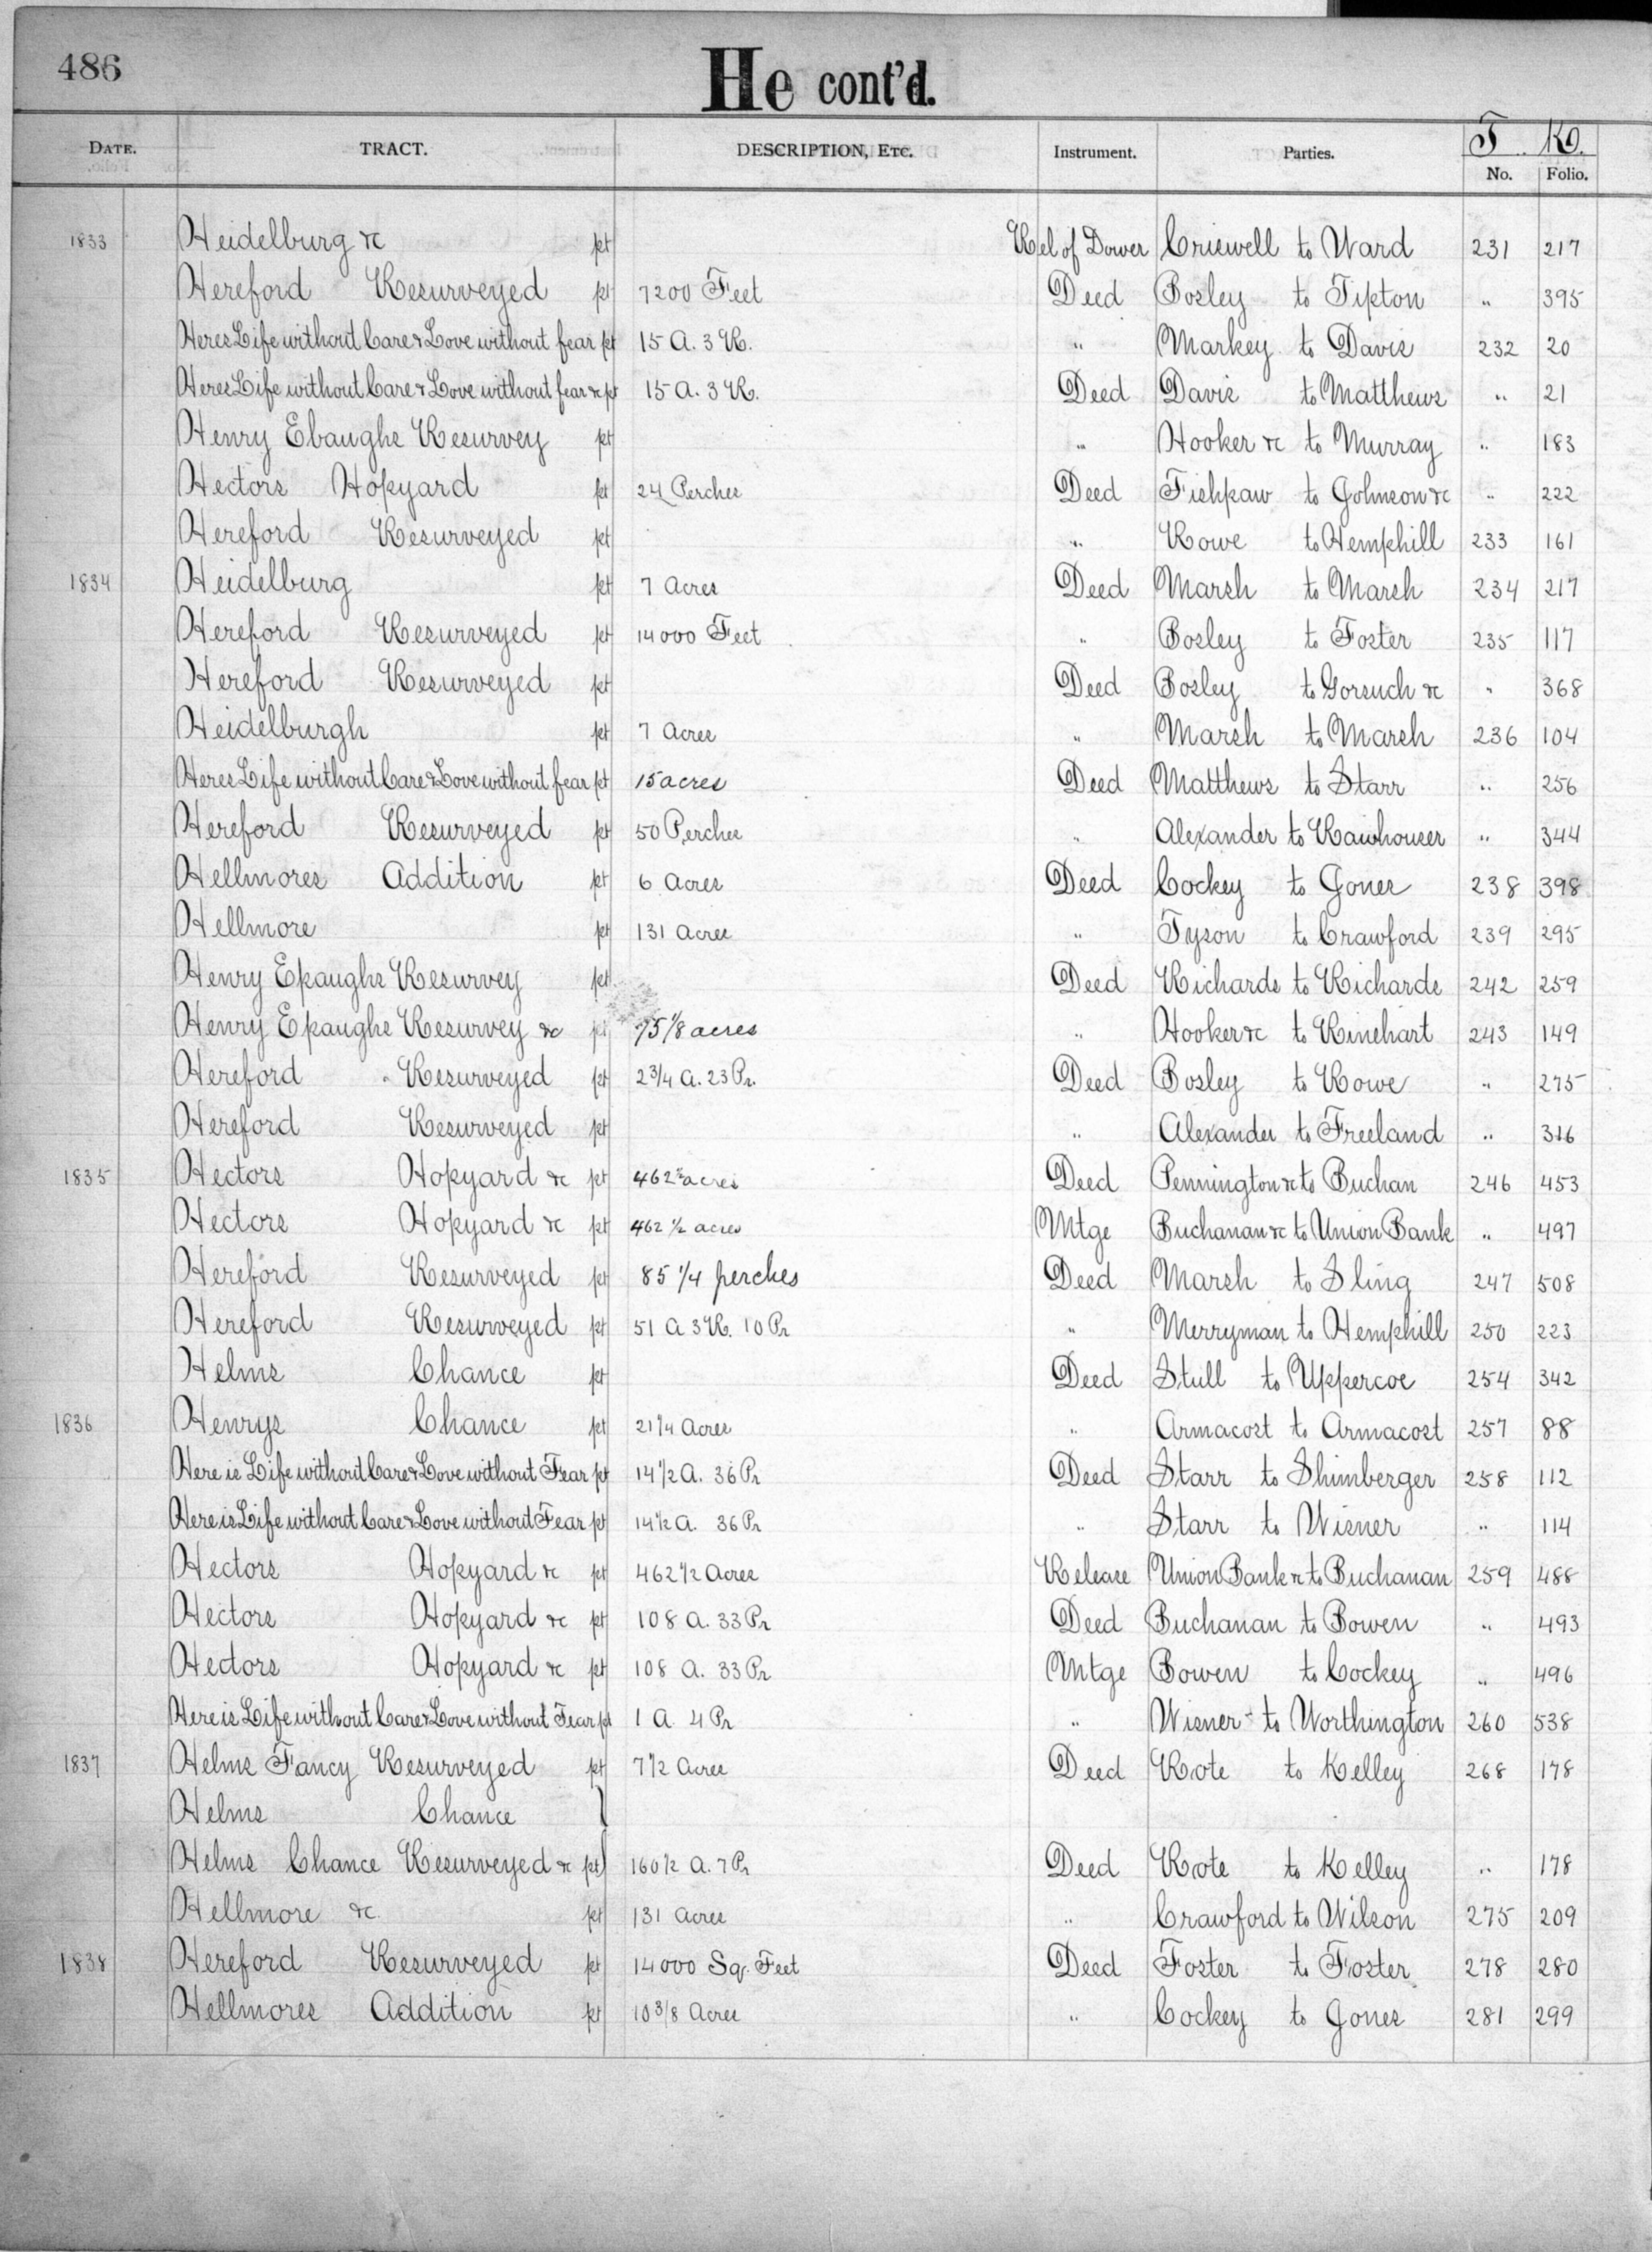 486
He cont'd.
DATE. TRACT. DESCRIPTION, ETC. Instrument. Parties. T. K. No. Folio.
1833 Heidelburg &c pt Rel of Dower Criswell to Ward 231 217
Hereford Resurveyed pt 7200 Feet Deed Bosley to Tipton " 395
Heres Life without Care & Love without fear pt 15 A. 3 R. " Markey to Davis 232 20
Heres Life without Care & Love without fear &c pt 15 A. 3 R. Deed Davis to Matthews " 21
Henry Ebaughs Resurvey pt " Hooker &c to Murray " 183
Hectors Hopyard pt 24 Perches Deed Fishpaw to Johnson &c " 222
Hereford Resurveyed pt " Rowe to Hemphill 233 161
1834 Heidelburg pt 7 Acres Deed Marsh to Marsh 234 217
Hereford Resurveyed pt 14000 Feet " Bosley to Foster 235 117
Hereford Resurveyed pt Deed Bosley to Gorsuch &c " 368
Heidelburgh pt 7 Acres " Marsh to Marsh 236 104
Heres Life without Care & Love without fear pt 15 acres Deed Matthews to Starr " 256
Hereford Resurveyed pt 50 Perches " Alexander to Rawhouser " 344
Hellmores Addition pt 6 Acres Deed Cockey to Jones 238 398
Hellmore pt 131 Acres " Tyson to Crawford 239 295
Henry Epaughs Resurvey pt Deed Richards to Richards 242 259
Henry Epaughs Resurvey &c pt 75 1/8 acres " Hooker &c to Rinehart 243 149
Hereford Resurveyed pt 2 3/4 A. 23 Pr. Deed Bosley to Rowe " 275
Hereford Resurveyed pt " Alexander to Freeland " 316
1835 Hectors Hopyard &c pt 462 1/2 acres Deed Pennington &c to Buchan 246 453
Hectors Hopyard &c pt 462 1/2 acres Mtge Buchanan &c to Union Bank " 497
Hereford Resurveyed pt 85 1/4 perches Deed Marsh to Sling 247 508
Hereford Resurveyed pt 51 A 3 R. 10 Pr " Merryman to Hemphill 250 223
Helms Chance pt Deed Stull to Uppercoe 254 342
1836 Henrys Chance pt 21 1/4 Acres " Armacost to Armacost 257 88
Here is Life without Care & Love without Fear pt 14 1/2 A. 36 Pr Deed Starr to Shimberger 258 112
Here is Life without Care & Love without Fear pt 14 1/2 A. 36 Pr " Starr to Wisner " 114
Hectors Hopyard &c pt 462 1/2 Acres Release Union Bank &c to Buchanan 259 488
Hectors Hopyard &c pt 108 A. 33 Pr Deed Buchanan to Bowen " 493
Hectors Hopyard &c pt 108 A. 33 Pr Mtge Bowen to Cockey " 496
Here is Life without Care & Love without Fear pt 1 A. 4 Pr " Wisner to Worthington 260 538
1837 Helms Fancy Resurveyed pt 7 1/2 Acres Deed Rote to Kelley 268 178
Helms Chance }
Helms Chance Resurveyed &c pt } 160 1/2 A. 7 Pr Deed Rote to Kelley " 178
Hellmore &c pt 131 Acres " Crawford to Wilson 275 209
1838 Hereford Resurveyed pt 14000 Sq. Feet Deed Foster to Foster 278 280
Hellmores Addition pt 10 3/8 Acres " Cockey to Jones 281 299